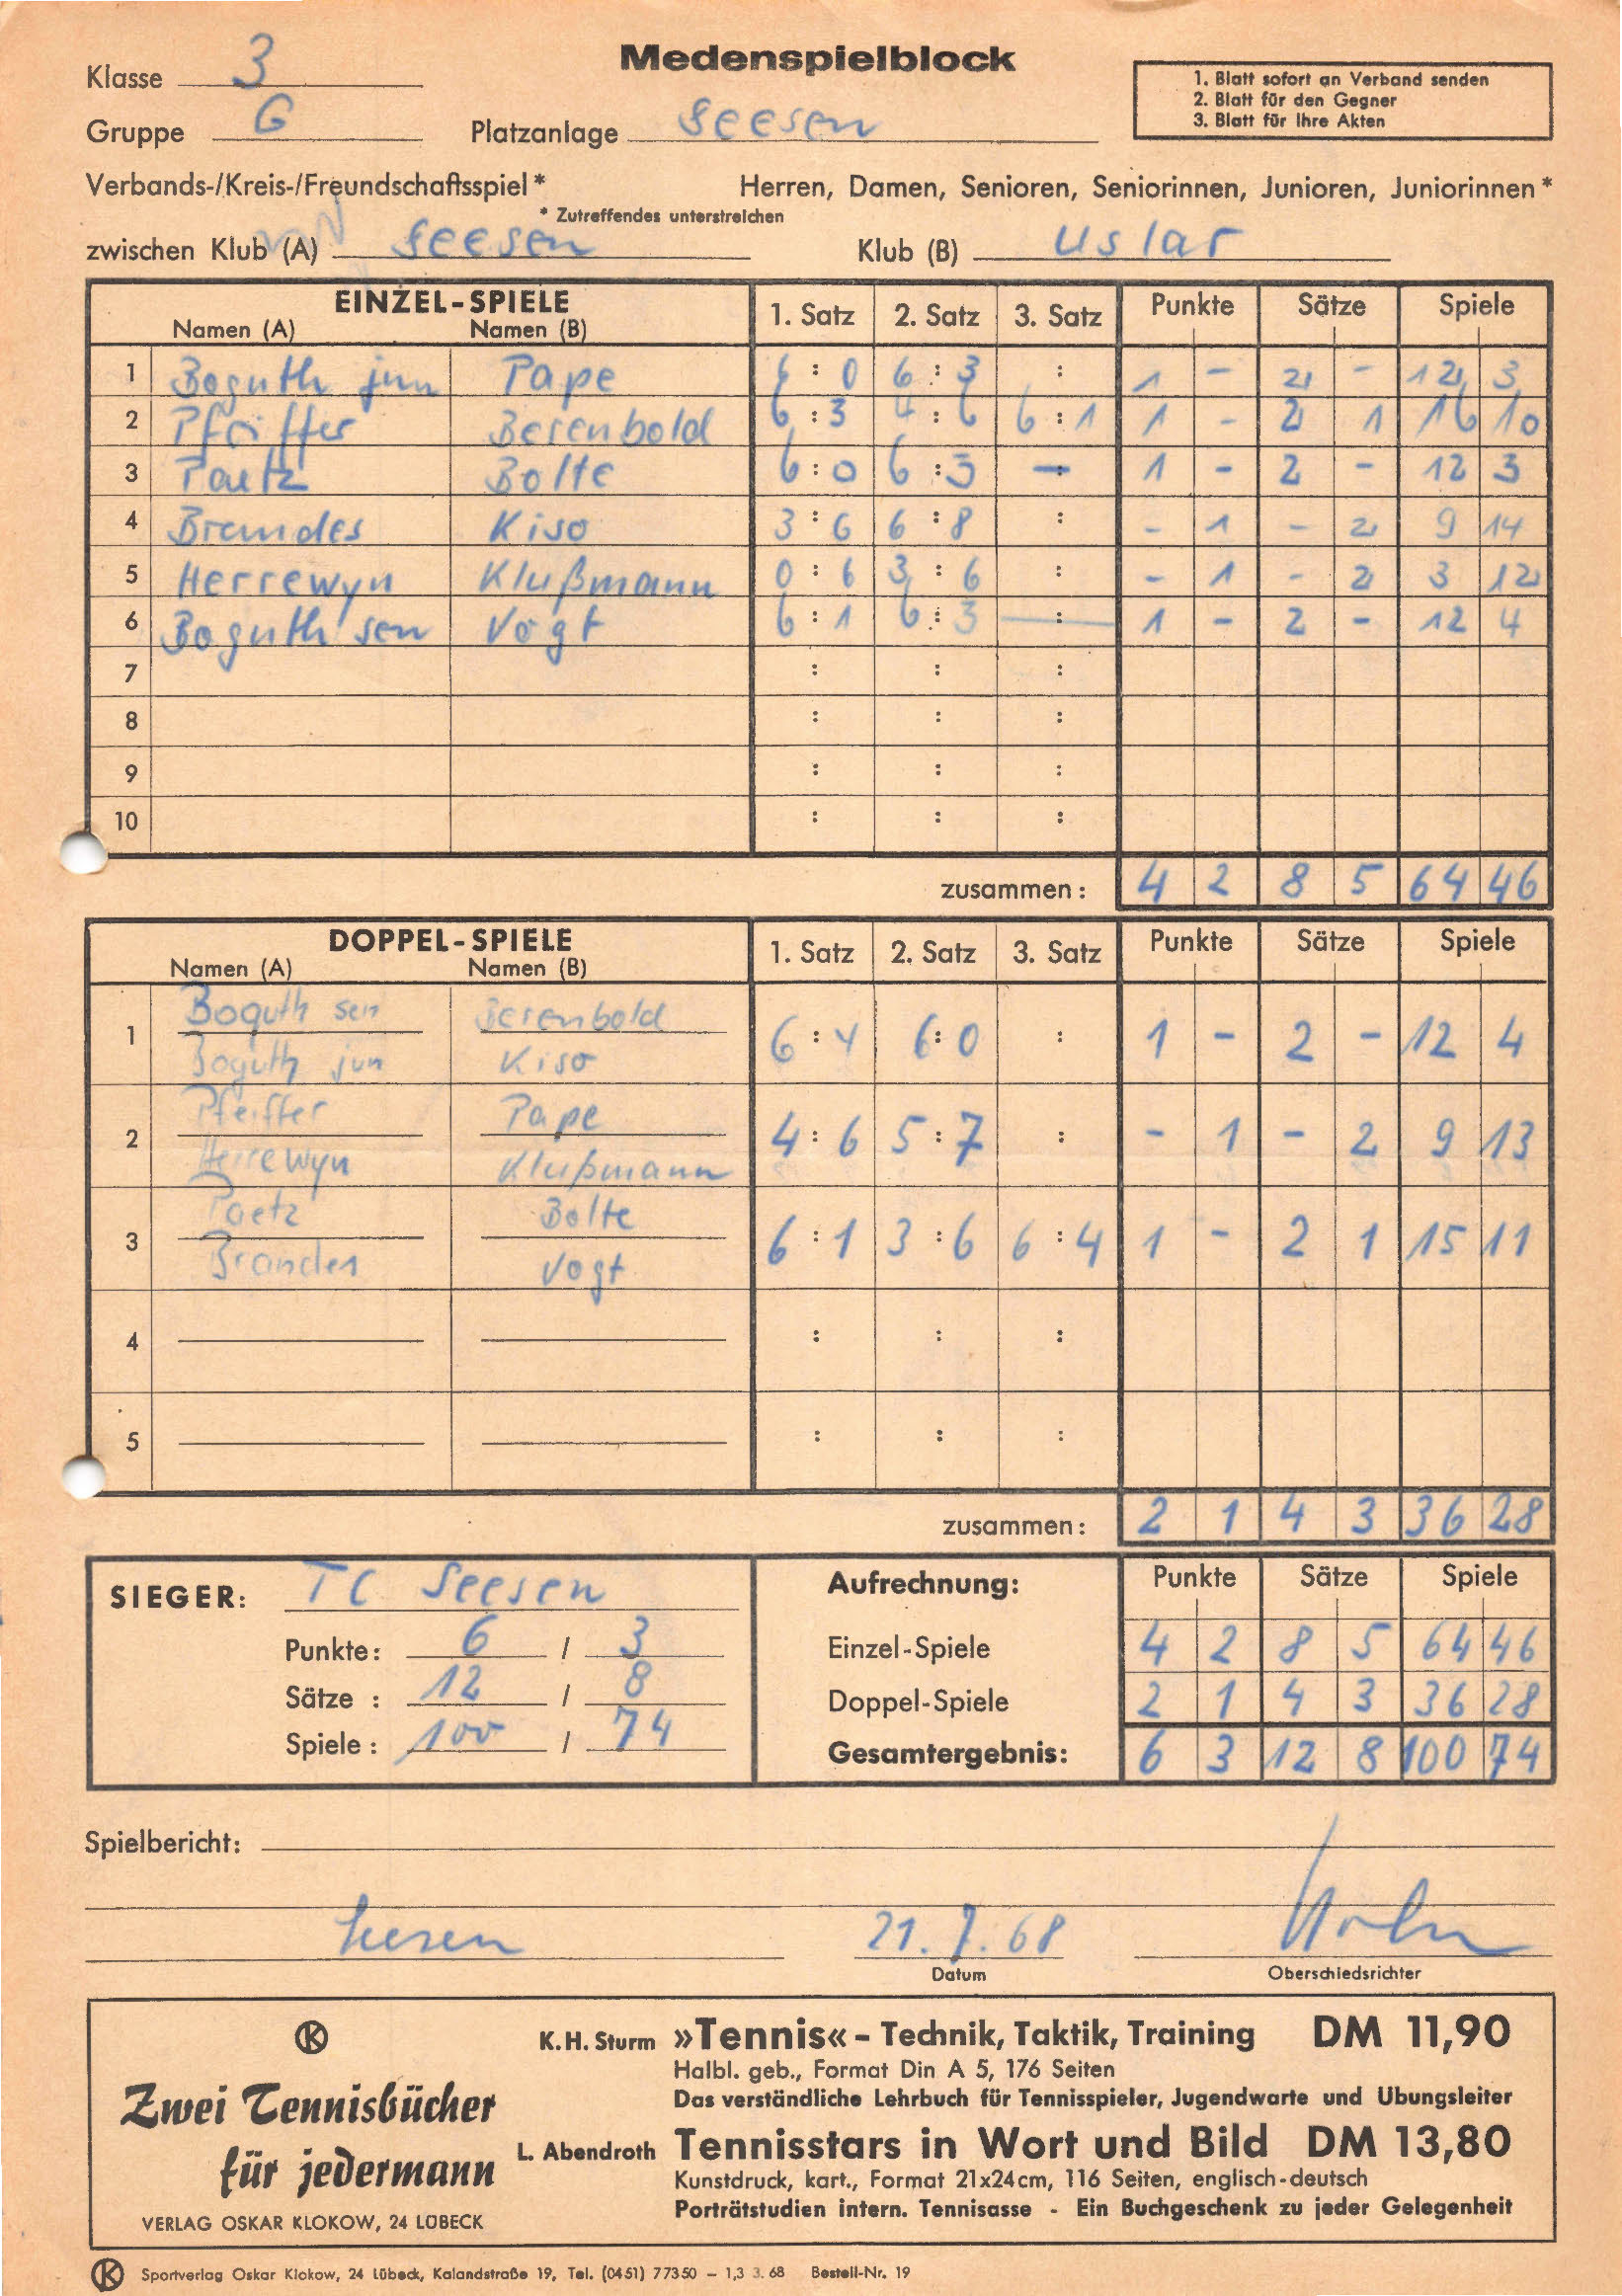 Medenspielblock
Klasse 3
Gruppe G
Platzanlage Seesen
1. Blatt sofort an Verband senden
2. Blatt für den Gegner
3. Blatt für Ihre Akten
Verbands-/Kreis-/Freundschaftsspiel* Herren, Damen, Senioren, Seniorinnen, Junioren, Juniorinnen*
* Zutreffendes unterstreichen
zwischen Klub (A) Seesen Klub (B) Uslar
EINZEL-SPIELE 1. Satz 2. Satz 3. Satz Punkte Sätze Spiele
Namen (A) Namen (B)
1 Boguth jun Pape 6:0 6:3 : 1 - 2 - 12 3
2 Pfeiffer Berenbold 6:3 4:6 6:1 1 - 2 1 16 10
3 Paetz Bolte 6:0 6:3 - 1 - 2 - 12 3
4 Brandes Kiso 3:6 6:8 : - 1 - 2 9 14
5 Herrewyn Klußmann 0:6 3:6 : - 1 - 2 3 12
6 Boguth sen Vogt 6:1 6:3 : 1 - 2 - 12 4
7 : : :
8 : : :
9 : : :
10 : : :
zusammen: 4 2 8 5 64 46
DOPPEL-SPIELE 1. Satz 2. Satz 3. Satz Punkte Sätze Spiele
Namen (A) Namen (B)
Boguth sen Berenbold
1 6:4 6:0 : 1 - 2 - 12 4
Boguth jun Kiso
Pfeiffer Pape
2 4:6 5:7 : - 1 - 2 9 13
Herrewyn Klußmann
Paetz Bolte
3 6:1 3:6 6:4 1 - 2 1 15 11
Brandes Vogt
4 : : :
5 : : :
zusammen: 2 1 4 3 36 28
SIEGER: TC Seesen
Punkte: 6 / 3
Sätze : 12 / 8
Spiele : 100 / 74
Aufrechnung: Punkte Sätze Spiele
Einzel-Spiele 4 2 8 5 64 46
Doppel-Spiele 2 1 4 3 36 28
Gesamtergebnis: 6 3 12 8 100 74
Spielbericht:
Seesen 21.7.68
Datum Oberschiedsrichter
K
Zwei Tennisbücher
für jedermann
VERLAG OSKAR KLOKOW, 24 LÜBECK
K.H. Sturm »Tennis« - Technik, Taktik, Training DM 11,90
Halbl. geb., Format Din A 5, 176 Seiten
Das verständliche Lehrbuch für Tennisspieler, Jugendwarte und Übungsleiter
L. Abendroth Tennisstars in Wort und Bild DM 13,80
Kunstdruck, kart., Format 21x24cm, 116 Seiten, englisch-deutsch
Porträtstudien intern. Tennisasse - Ein Buchgeschenk zu jeder Gelegenheit
K Sportverlag Oskar Klokow, 24 Lübeck, Kalandstraße 19, Tel. (0451) 77350 – 1,3 3. 68 Bestell-Nr. 19